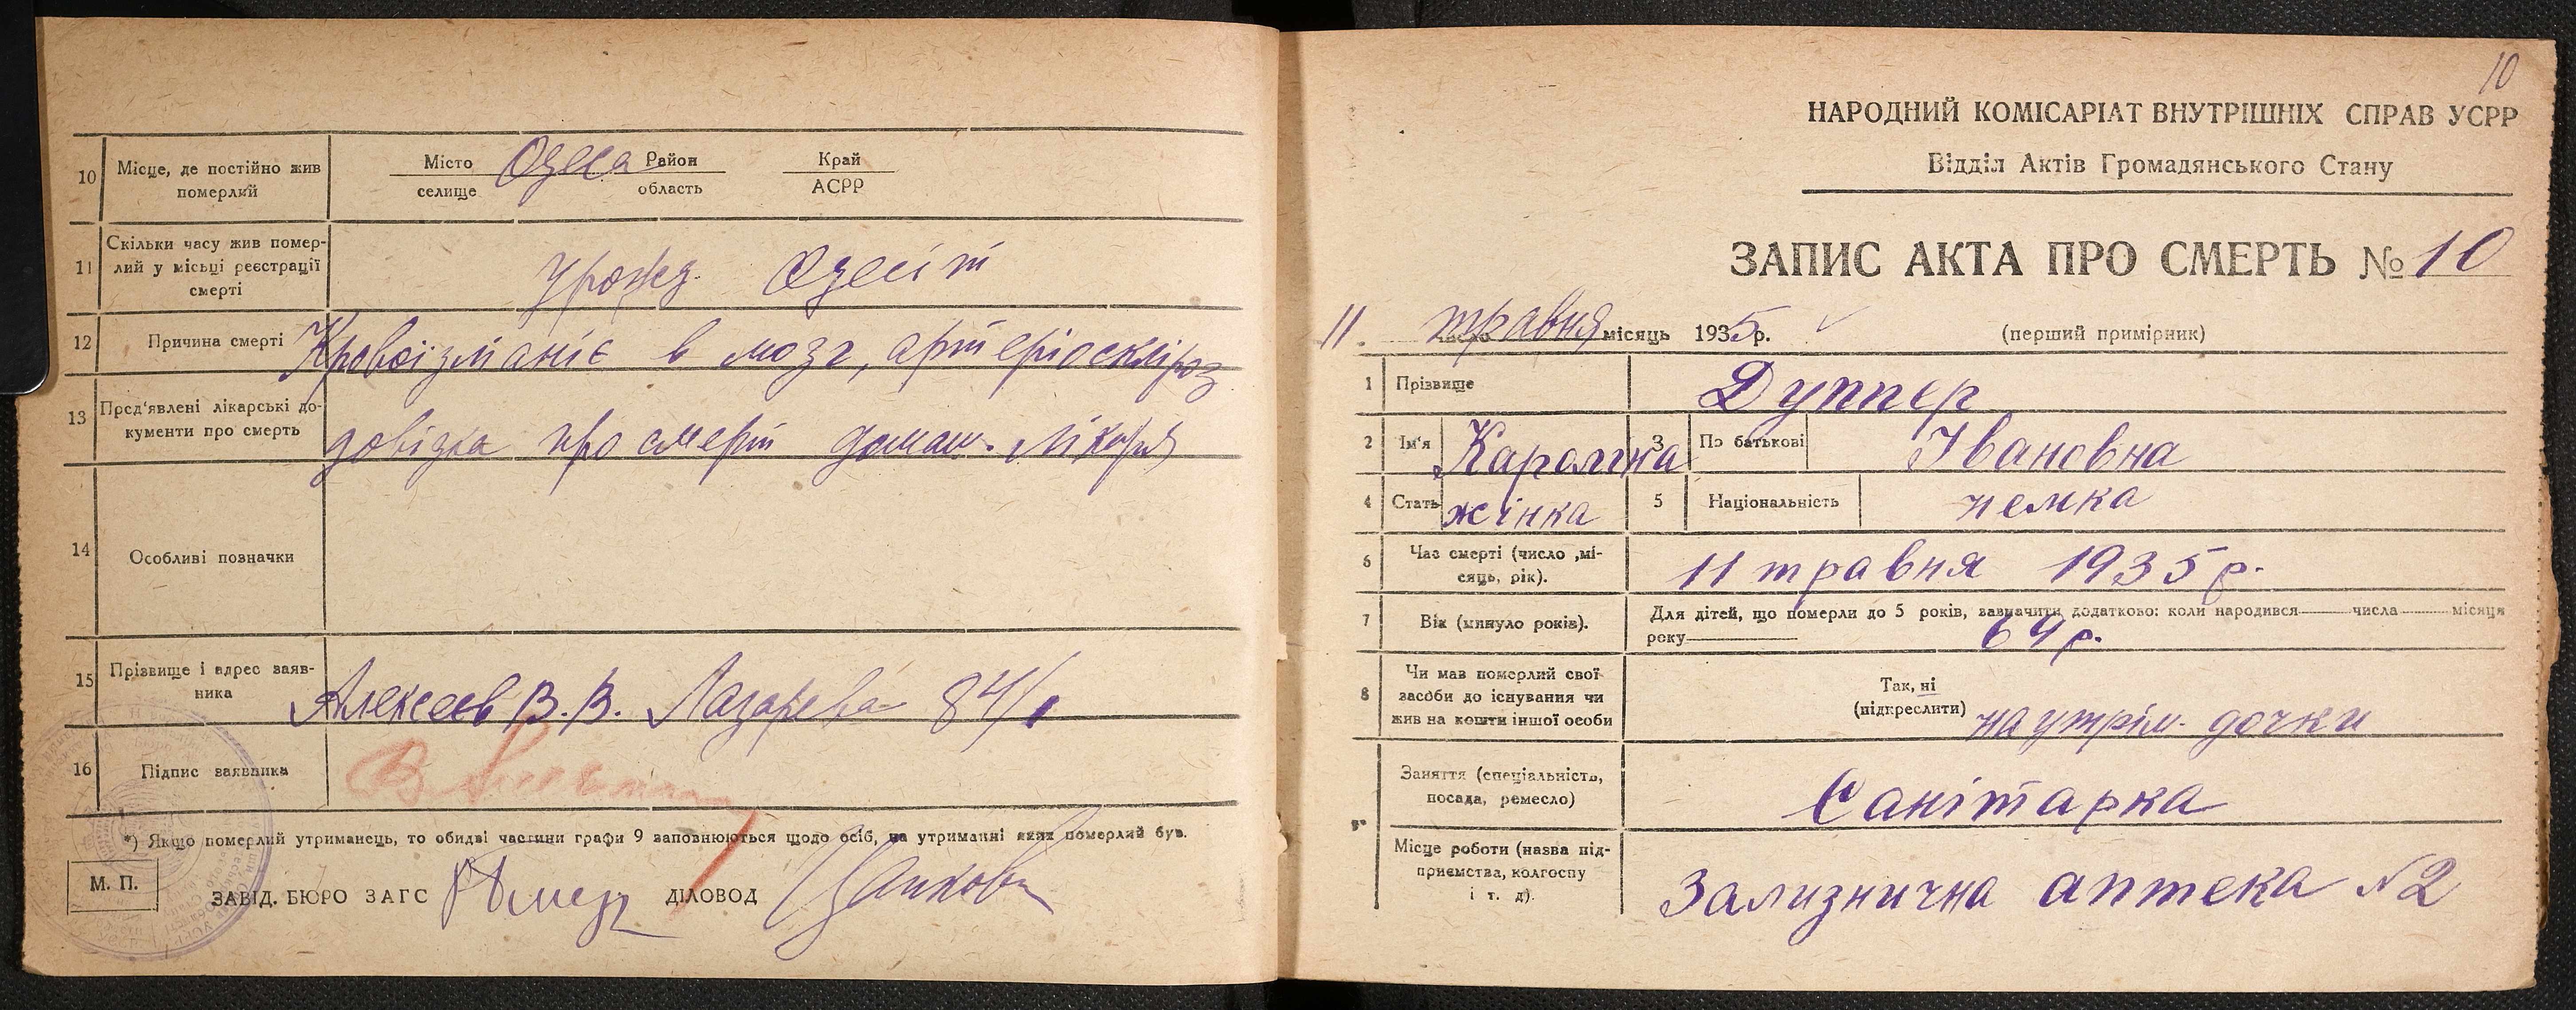 10 Місце, де постійно жив
померлий
Місто Одеса Район Край
селище область АСРР
11 Скільки часу жив помер-
лий у місьці реєстрації
смерті
урожд. Одесіт
12 Причина смерті Кровоізліаніє в мозг, артеріосклероз
13 Пред'явлені лікарські до-
кументи про смерть
довідка про смерт домаш. лікаря
14 Особливі позначки
15 Прізвище і адрес заяв-
ника
Алексеев В. В. Лазарева 84/1
16 Підпис заявника
*) Якщо померлий утриманець, то обидві частини графи 9 заповнюються щодо осіб, на утриманні яких померлий був.
М. П.
ЗАВІД. БЮРО ЗАГС ДІЛОВОД
10
НАРОДНИЙ КОМІСАРІАТ ВНУТРІШНІХ СПРАВ УСРР
Відділ Актів Громадянського Стану
ЗАПИС АКТА ПРО СМЕРТЬ № 10
11. травня місяць 1935 р. (перший примірник)
1 Прізвище Дуппер
2 Ім'я Каролина 3 По батькові Івановна
4 Стать жінка 5 Національність немка
6 Час смерті (число ,мі-
сяць, рік).
11 травня 1935 р.
7 Вік (минуло років).
Для дітей, що померли до 5 років, зазначити додатково: коли народився числа місяця
року 64 р.
8 Чи мав померлий свої
засоби до існування чи
жив на кошти іншої особи
Так, ні
(підкреслити) на утрім. дочки
9* Заняття (спеціальність,
посада, ремесло)
Санітарка
Місце роботи (назва під-
приємства, колгоспу
і т. д).
Зализнична аптека №2